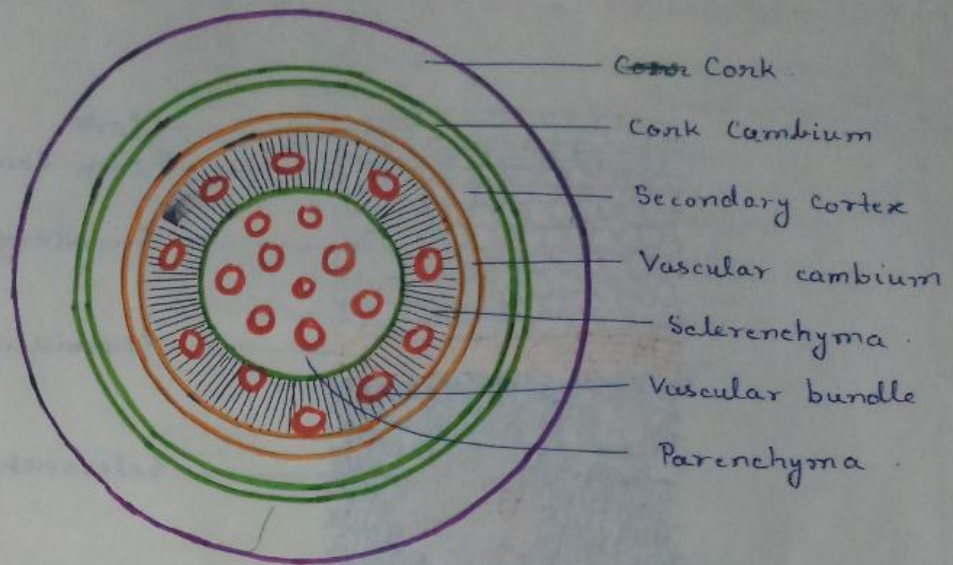 Cork
Cork Cambium
Secondary Cortex
Vascular cambium
Sclerenchyma.
Vascular bundle
Parenchyma.